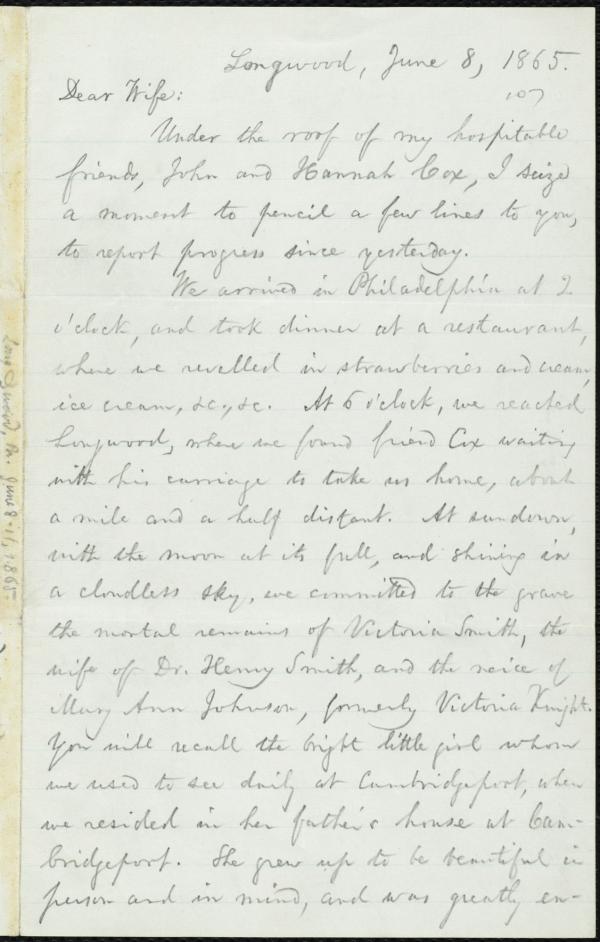 Longwood, June 8, 1865.
107
Dear Wife:
Under the roof of my hospitable
friends, John and Hannah Cox, I seize
a moment to pencil a few lines to you,
to report progress since yesterday.
We arrived in Philadelphia at 2
o'clock, and took dinner at a restaurant,
where we revelled in strawberries and cream,
ice cream, &c., &c. At 6 o'clock, we reached
Longwood, where we found friend Cox waiting
with his carriage to take us home, about
a mile and a half distant. At sundown,
with the moon at its full, and shining in
a cloudless sky, we committed to the grave
the mortal remains of Victoria Smith, the
wife of Dr. Henry Smith, and the neice of
Mary Ann Johnson, formerly Victoria Knight.
You will recall the bright little girl whom
we used to see daily at Cambridgeport, when
we resided in her father's house at Cam-
bridgeport. She grew up to be beautiful in
person and in mind, and was greatly en-
Longwood, Pa. June 8-11, 1865.